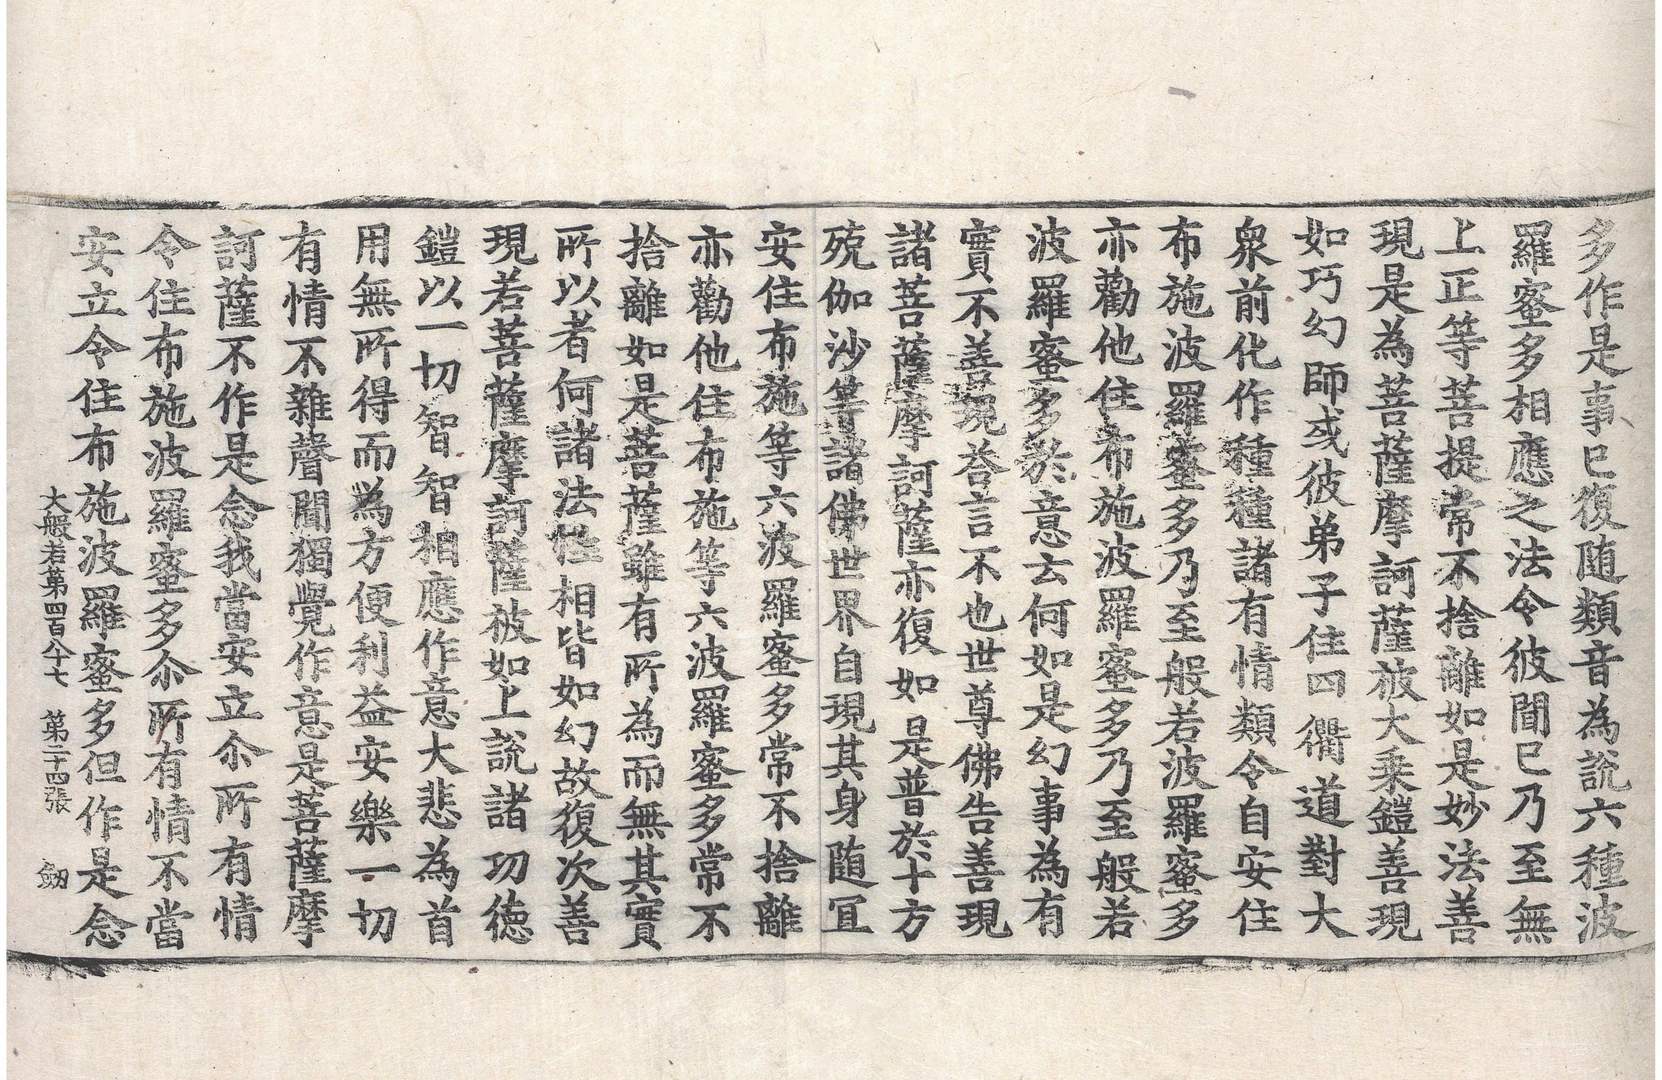 多作是事已復随類音為說六種波
羅蜜多相應之法令彼聞已乃至無
上正等菩提常不捨離如是妙法善
現是為菩薩摩訶薩被大乗鎧善現
如巧幻師或彼弟子住四衢道對大
衆前化作種種諸有情類令自安住
布施波羅蜜多乃至般若波羅蜜多
亦勸他住布施波羅蜜多乃至般若
波羅蜜多於意云何如是幻事為有
實不善現荅言不也世尊佛告善現
諸菩薩摩訶薩亦復如是普於十方
殑伽沙等諸佛世界自現其身随冝
安住布施等六波羅蜜多常不捨離
亦勸他住布施等六波羅蜜多常不
捨離如是菩薩雖有所為而無其實
所以者何諸法性相皆如幻故復次善
現若菩薩摩訶薩被如上說諸功德
鎧以一切智智相應作意大悲為首
用無所得而為方便利益安樂一切
有情不雜聲聞獨覺作意是菩薩摩
訶薩不作是念我當安立尒所有情
令住布施波羅蜜多尒所有情不當
安立令住布施波羅蜜多但作是念
大般若第四百八十七　第二十四張　劒